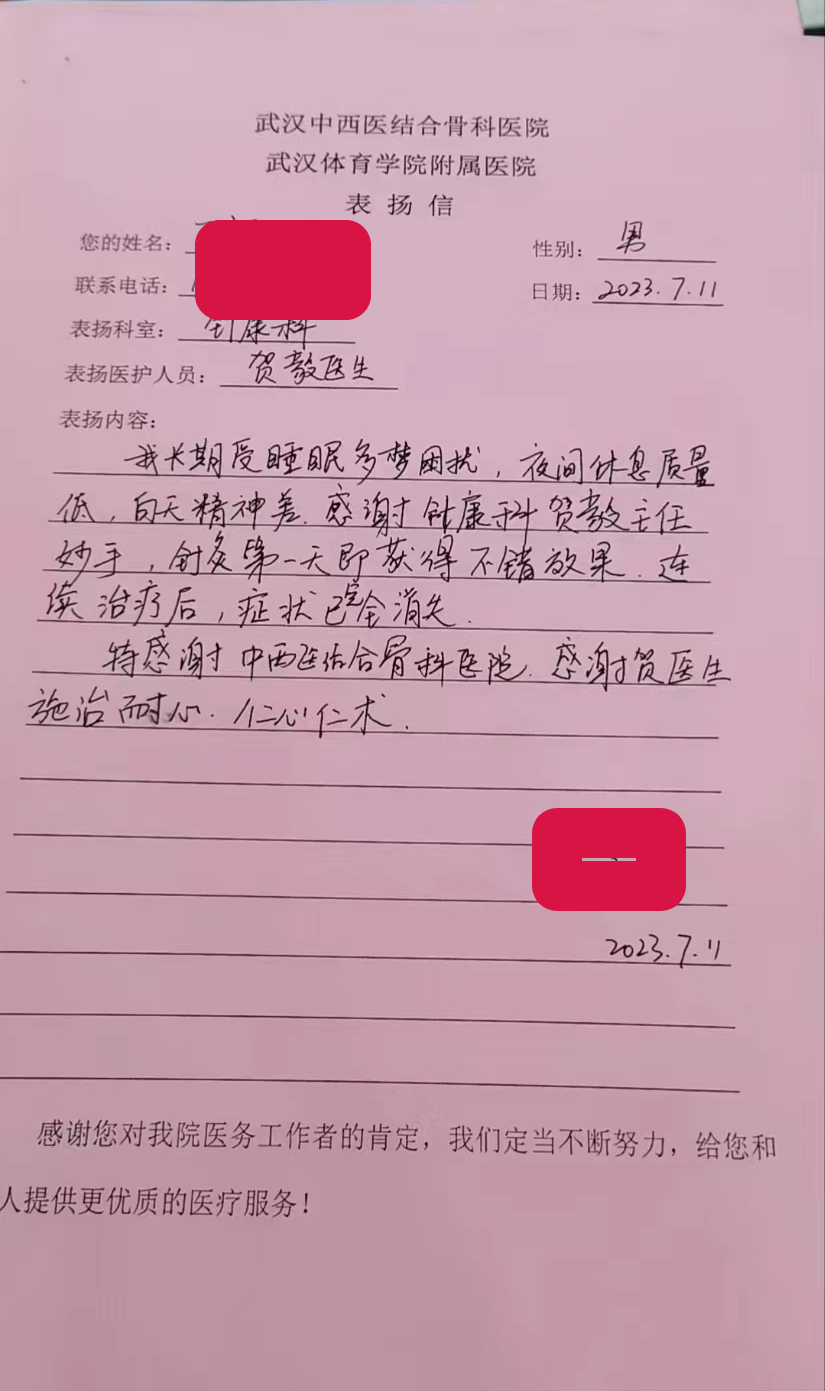 武汉中西医结合骨科医院
武汉体育学院附属医院
表扬信
您的姓名： 性别：男
联系电话： 日期：2023.7.11
表扬科室：针康科
表扬医护人员：贺毅医生
表扬内容：
我长期受睡眠多梦困扰，夜间休息质量
低，白天精神差.感谢针康科贺毅主任
妙手，针灸第一天即获得不错效果.连
续治疗后，症状已完全消失.
特感谢中西医结合骨科医院.感谢贺医生
施治耐心.仁心仁术.
2023.7.11
感谢您对我院医务工作者的肯定，我们定当不断努力，给您和
人提供更优质的医疗服务！